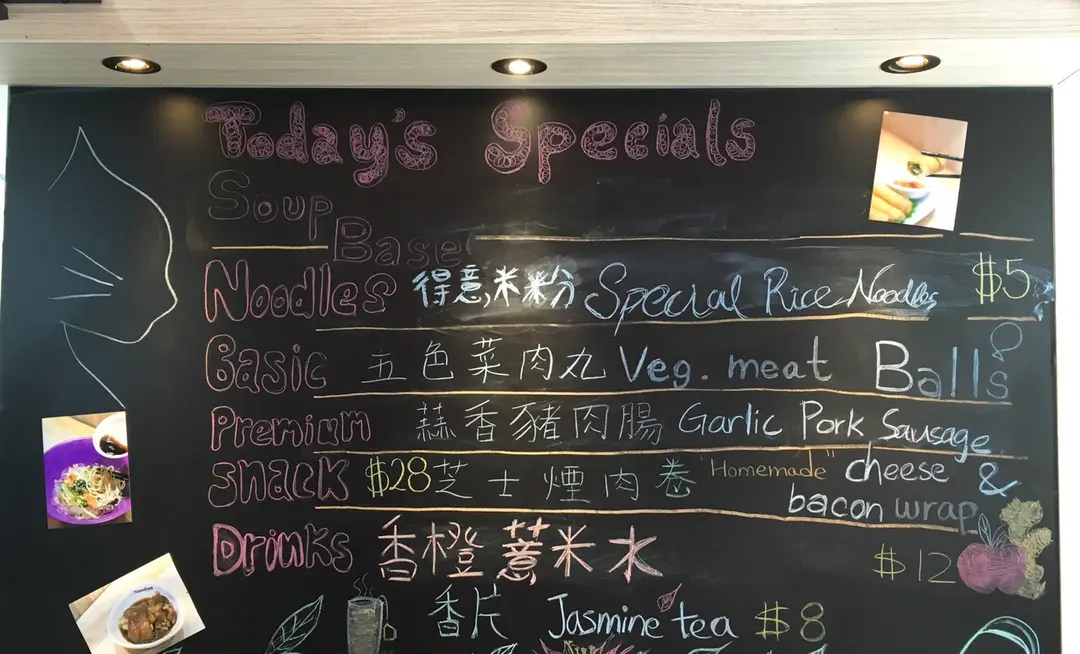 Today's Specials
Soup Base
Noodles 得意米粉 Special Rice Noodles $5
Basic 五色菜肉丸 Veg. meat Balls
Premium 蒜香豬肉腸 Garlic Pork Sausage
Snack $28 芝士煙肉卷 "Homemade" cheese &
bacon wrap
Drinks 香橙薏米水 $12
香片 Jasmine tea $8